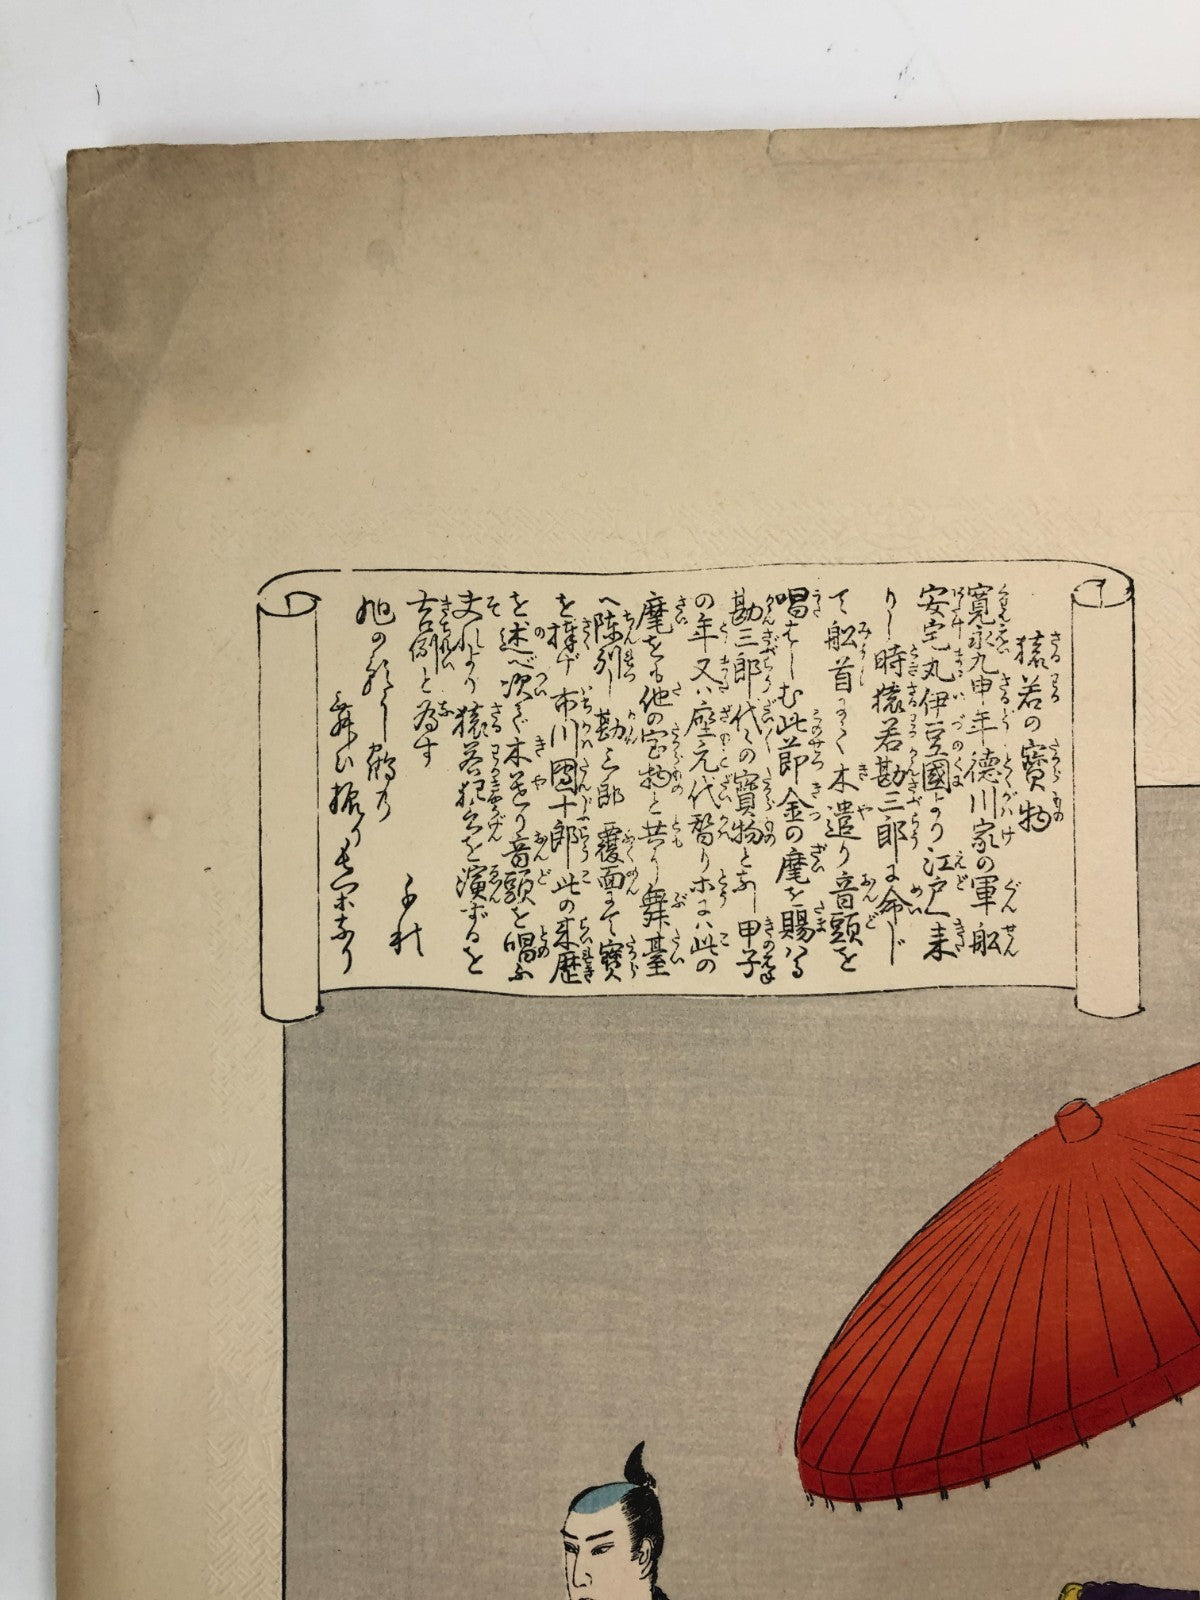 猿若の寶物
寛永九申年徳川家の軍船
安宅丸伊豆國より江戸へ来
りし時猿若勘三郎に命じ
て舩首にて木遣り音頭を
唱はしむ此節金の麾を賜はる
勘三郎代々の寶物となし甲子
の年又ハ座元代替りホにハ此の
麾をも他の宝物と共に舞臺
へ陳列し勘三郎覆面にて寶
を捧げ市川團十郎此の来歴
を述べ次で木遣り音頭を唱ふ
夫れより猿若狂言を演ずるを
古例と為す
旭の
舞ひ振り